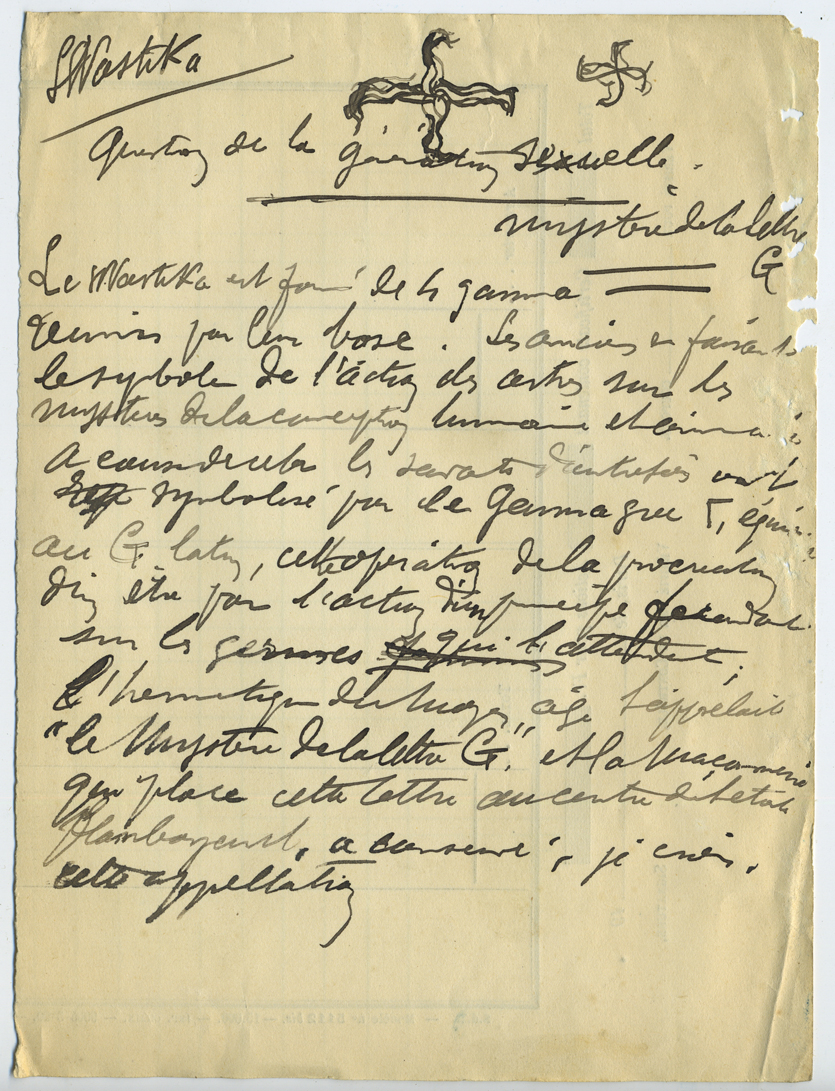 SWastika
Question de la génération sexuelle.
mystère de la lettre
G
Le SWastika est formé de 4 gamma
réunis par leur base. Les anciens en faisaient
le symbole de l'action des astres sur les
mystères de la conception humaine et
A cause de cela les savants d'autrefois ont
symbolisé par le Gamma grec Γ,
au G latin, cette opération de la procréation
être par l'action d'un principe fécondant
sur les germes qui l'attendent,
L'hermétique du moyen âge l'appelait
"le Mystère de la lettre G." et la Maçonnerie
qui place cette lettre au centre de l'étoile
Flamboyante, a conservé, je crois,
cette appellation